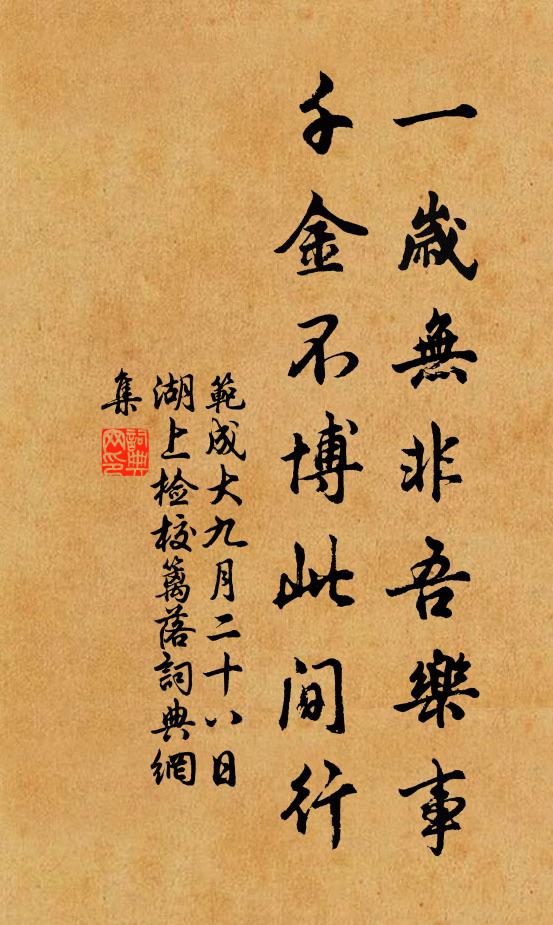 一歲無非吾樂事
千金不博此間行
範成大九月二十八日
湖上检校籬落詞典網
集
詞典
网印